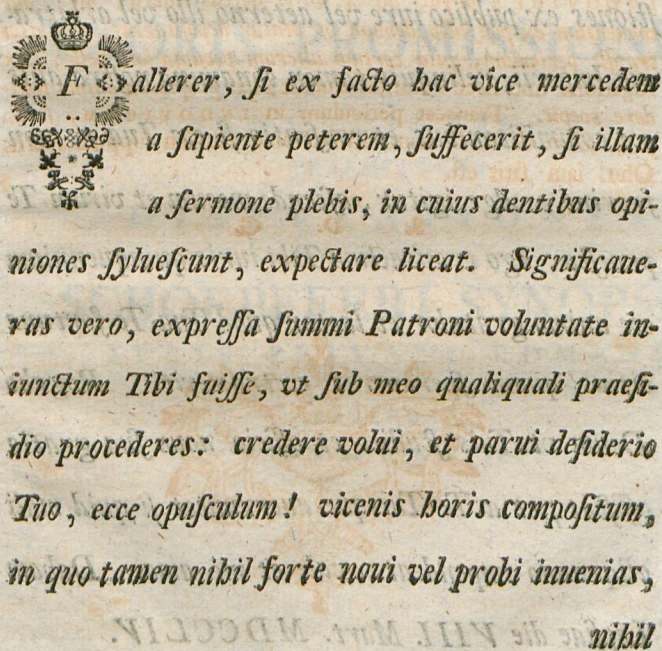 Fallerer, ſi ex facto hac vice mercedem
a ſapiente peterem, ſuffecerit, ſi illam
a ſermone plebis, in cuius dentibus opi-
niones ſylueſcunt, expectare liceat. Significaue-
ras vero, expreſſa ſummi Patroni voluntate in-
iunctum Tibi fuiſſe, vt ſub meo qualiquali praeſi-
dio procederes: credere volui, et parui deſiderio
Tuo, ecce opuſculum! vicenis horis compoſitum,
in quo tamen nihil forte noui vel probi inuenias,
nihil